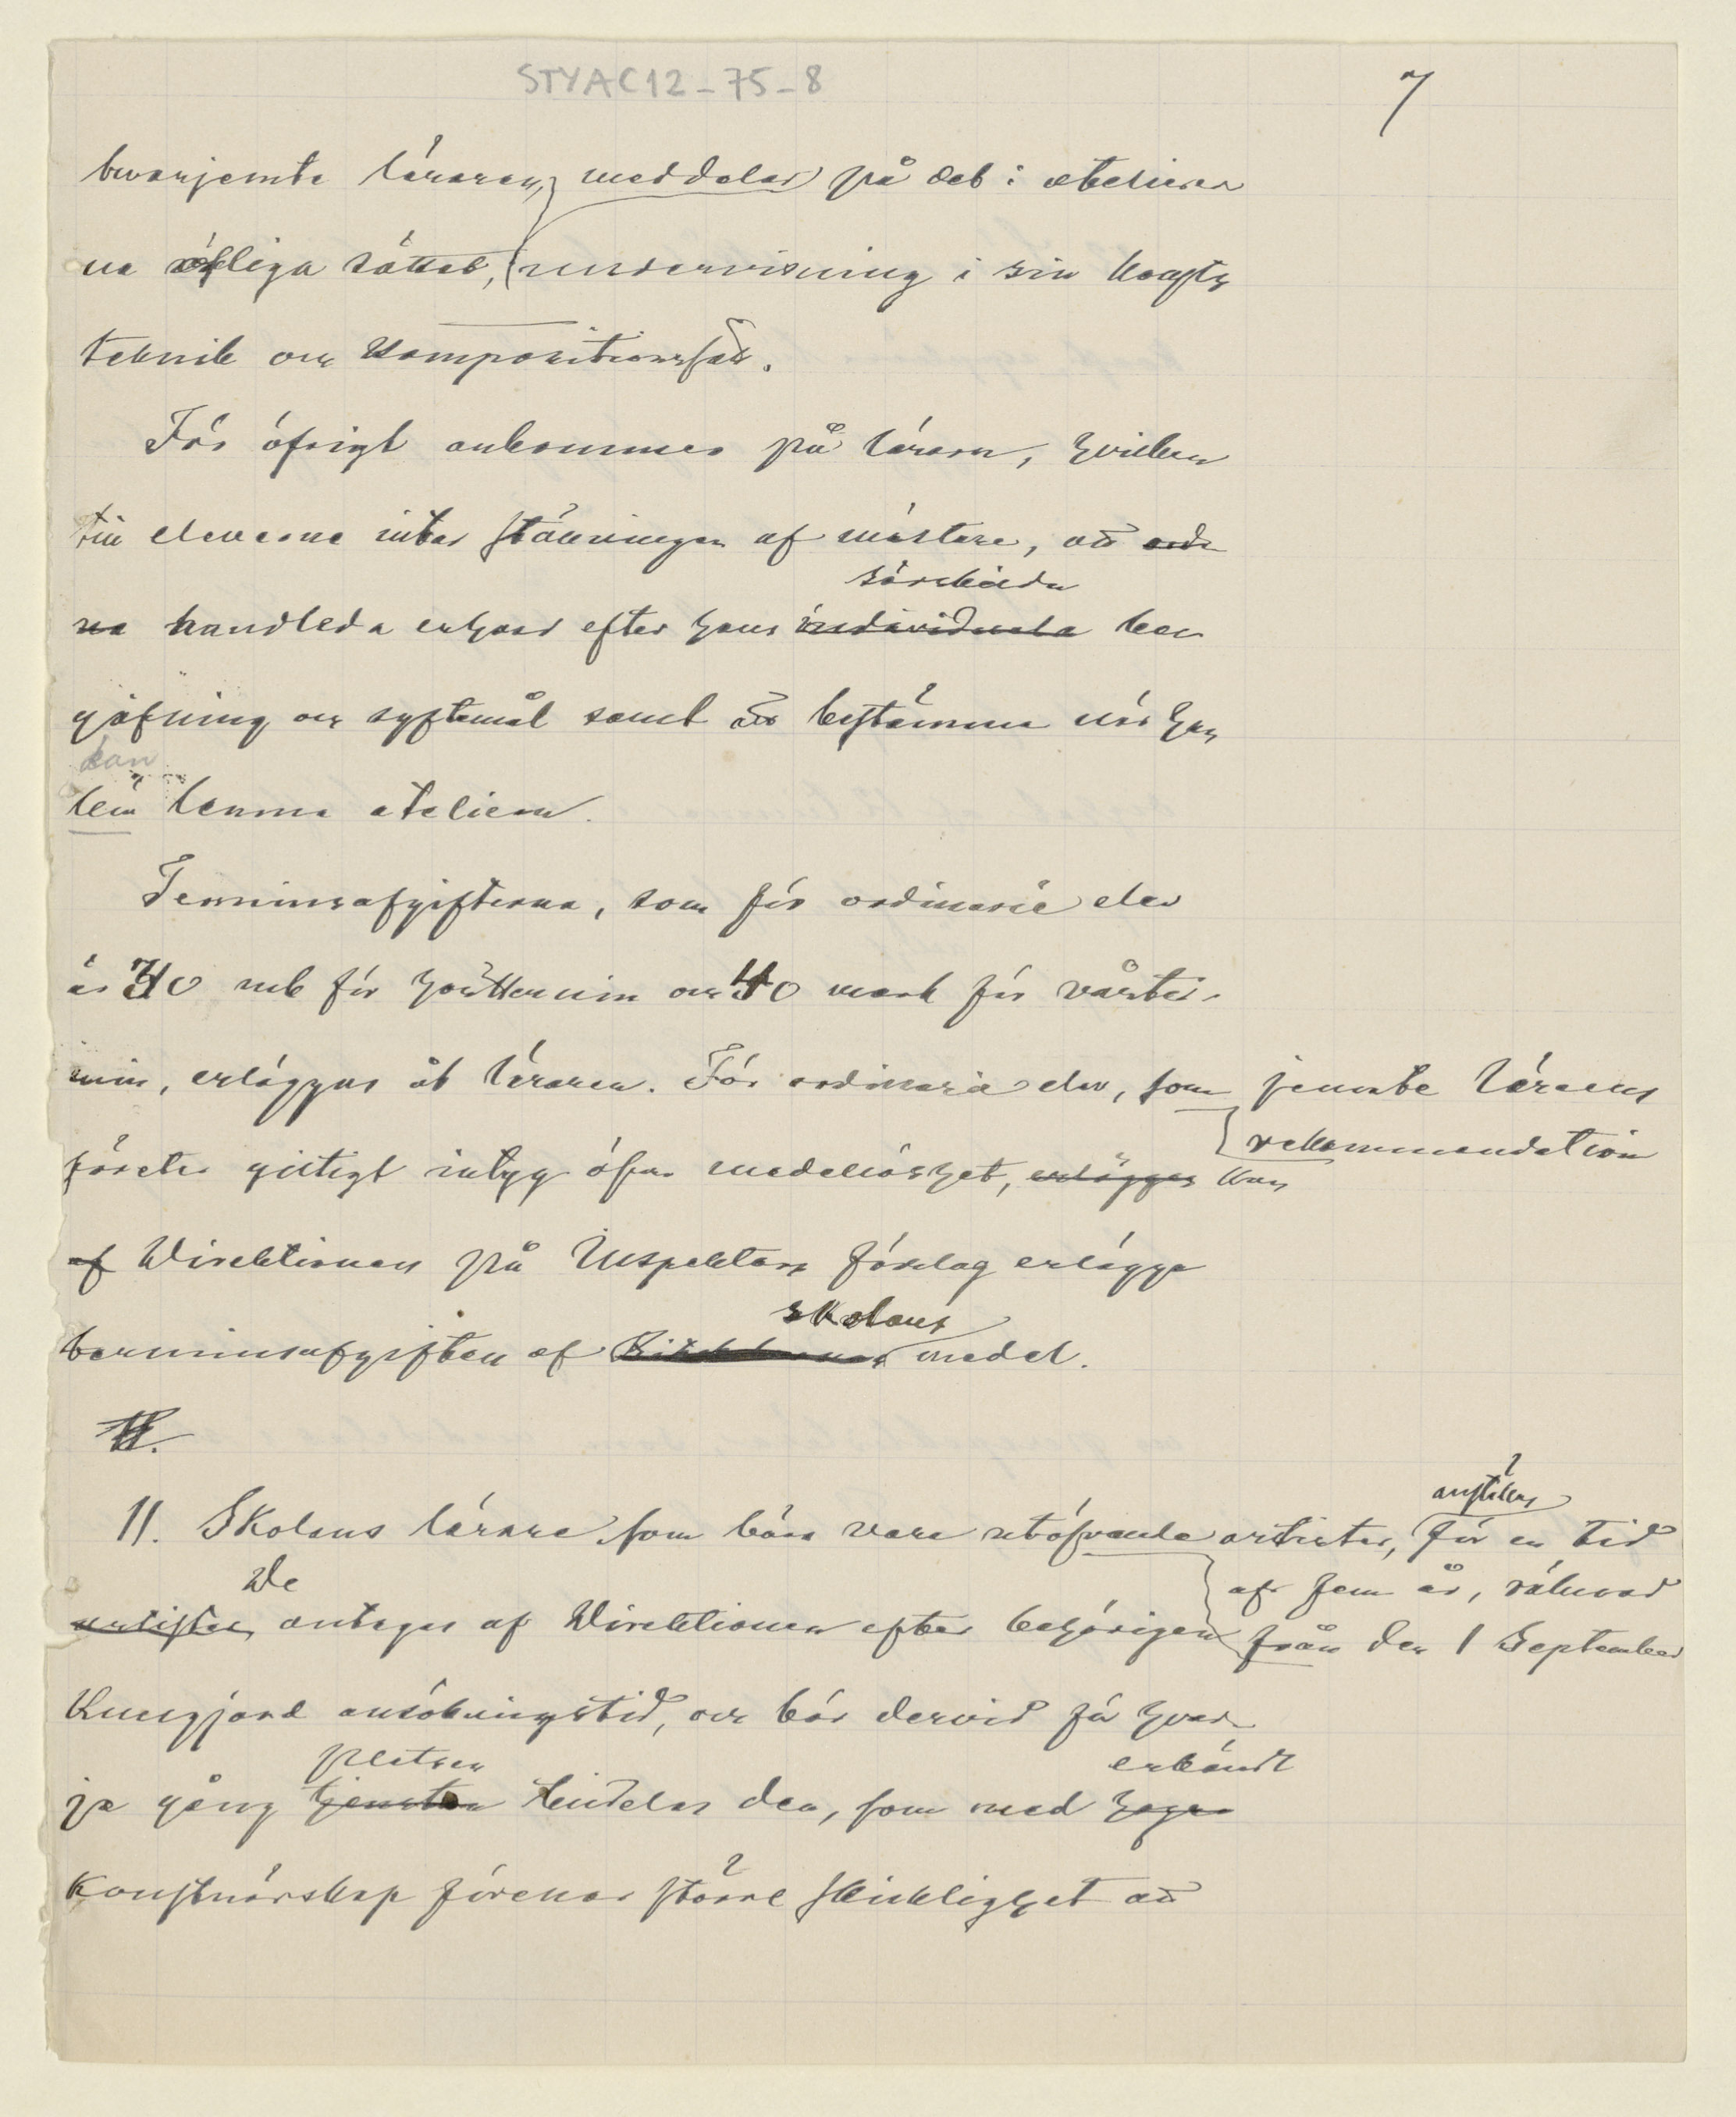 STYAC12-75-8
7
hvarjemte läraren, meddelar på det i atelierer
na öfliga sättet, undervisning i sin konsts
teknik och kompositionssätt.
För öfrigt ankommer på läraren, hvilken
till eleverne intar ställningen af mästare, att
särskilda
na handleda enhvar efter hans individuela be
gåfning och syftemål samt att bestämma när han
kan
lemna atelieren.
Terminsafgifterna, som för ordinarie elev
är 30 mk för hösttermin och 40 mark för vårter-
min, erlägges åt läraren. För ordinarie elev, som jemte lärarens
rekommendation
företer giltigt intyg öfver medellöshet, erlägges kan
af Direktionen på Inspektors förslag erlägga
skolans
terminsafgiften af medel.
anställas
11. Skolans lärare som böra vara utöfvande artister, för en tid
af fem år, räknad
De
artister, antages af Direktionen efter behörigen från den 1 September
kungjord ansökningstid, och bör dervid för hvar-
platsen
erkändt
je gång tjensten tilldelas den, som med högre
konstnärskap förenar större skicklighet att